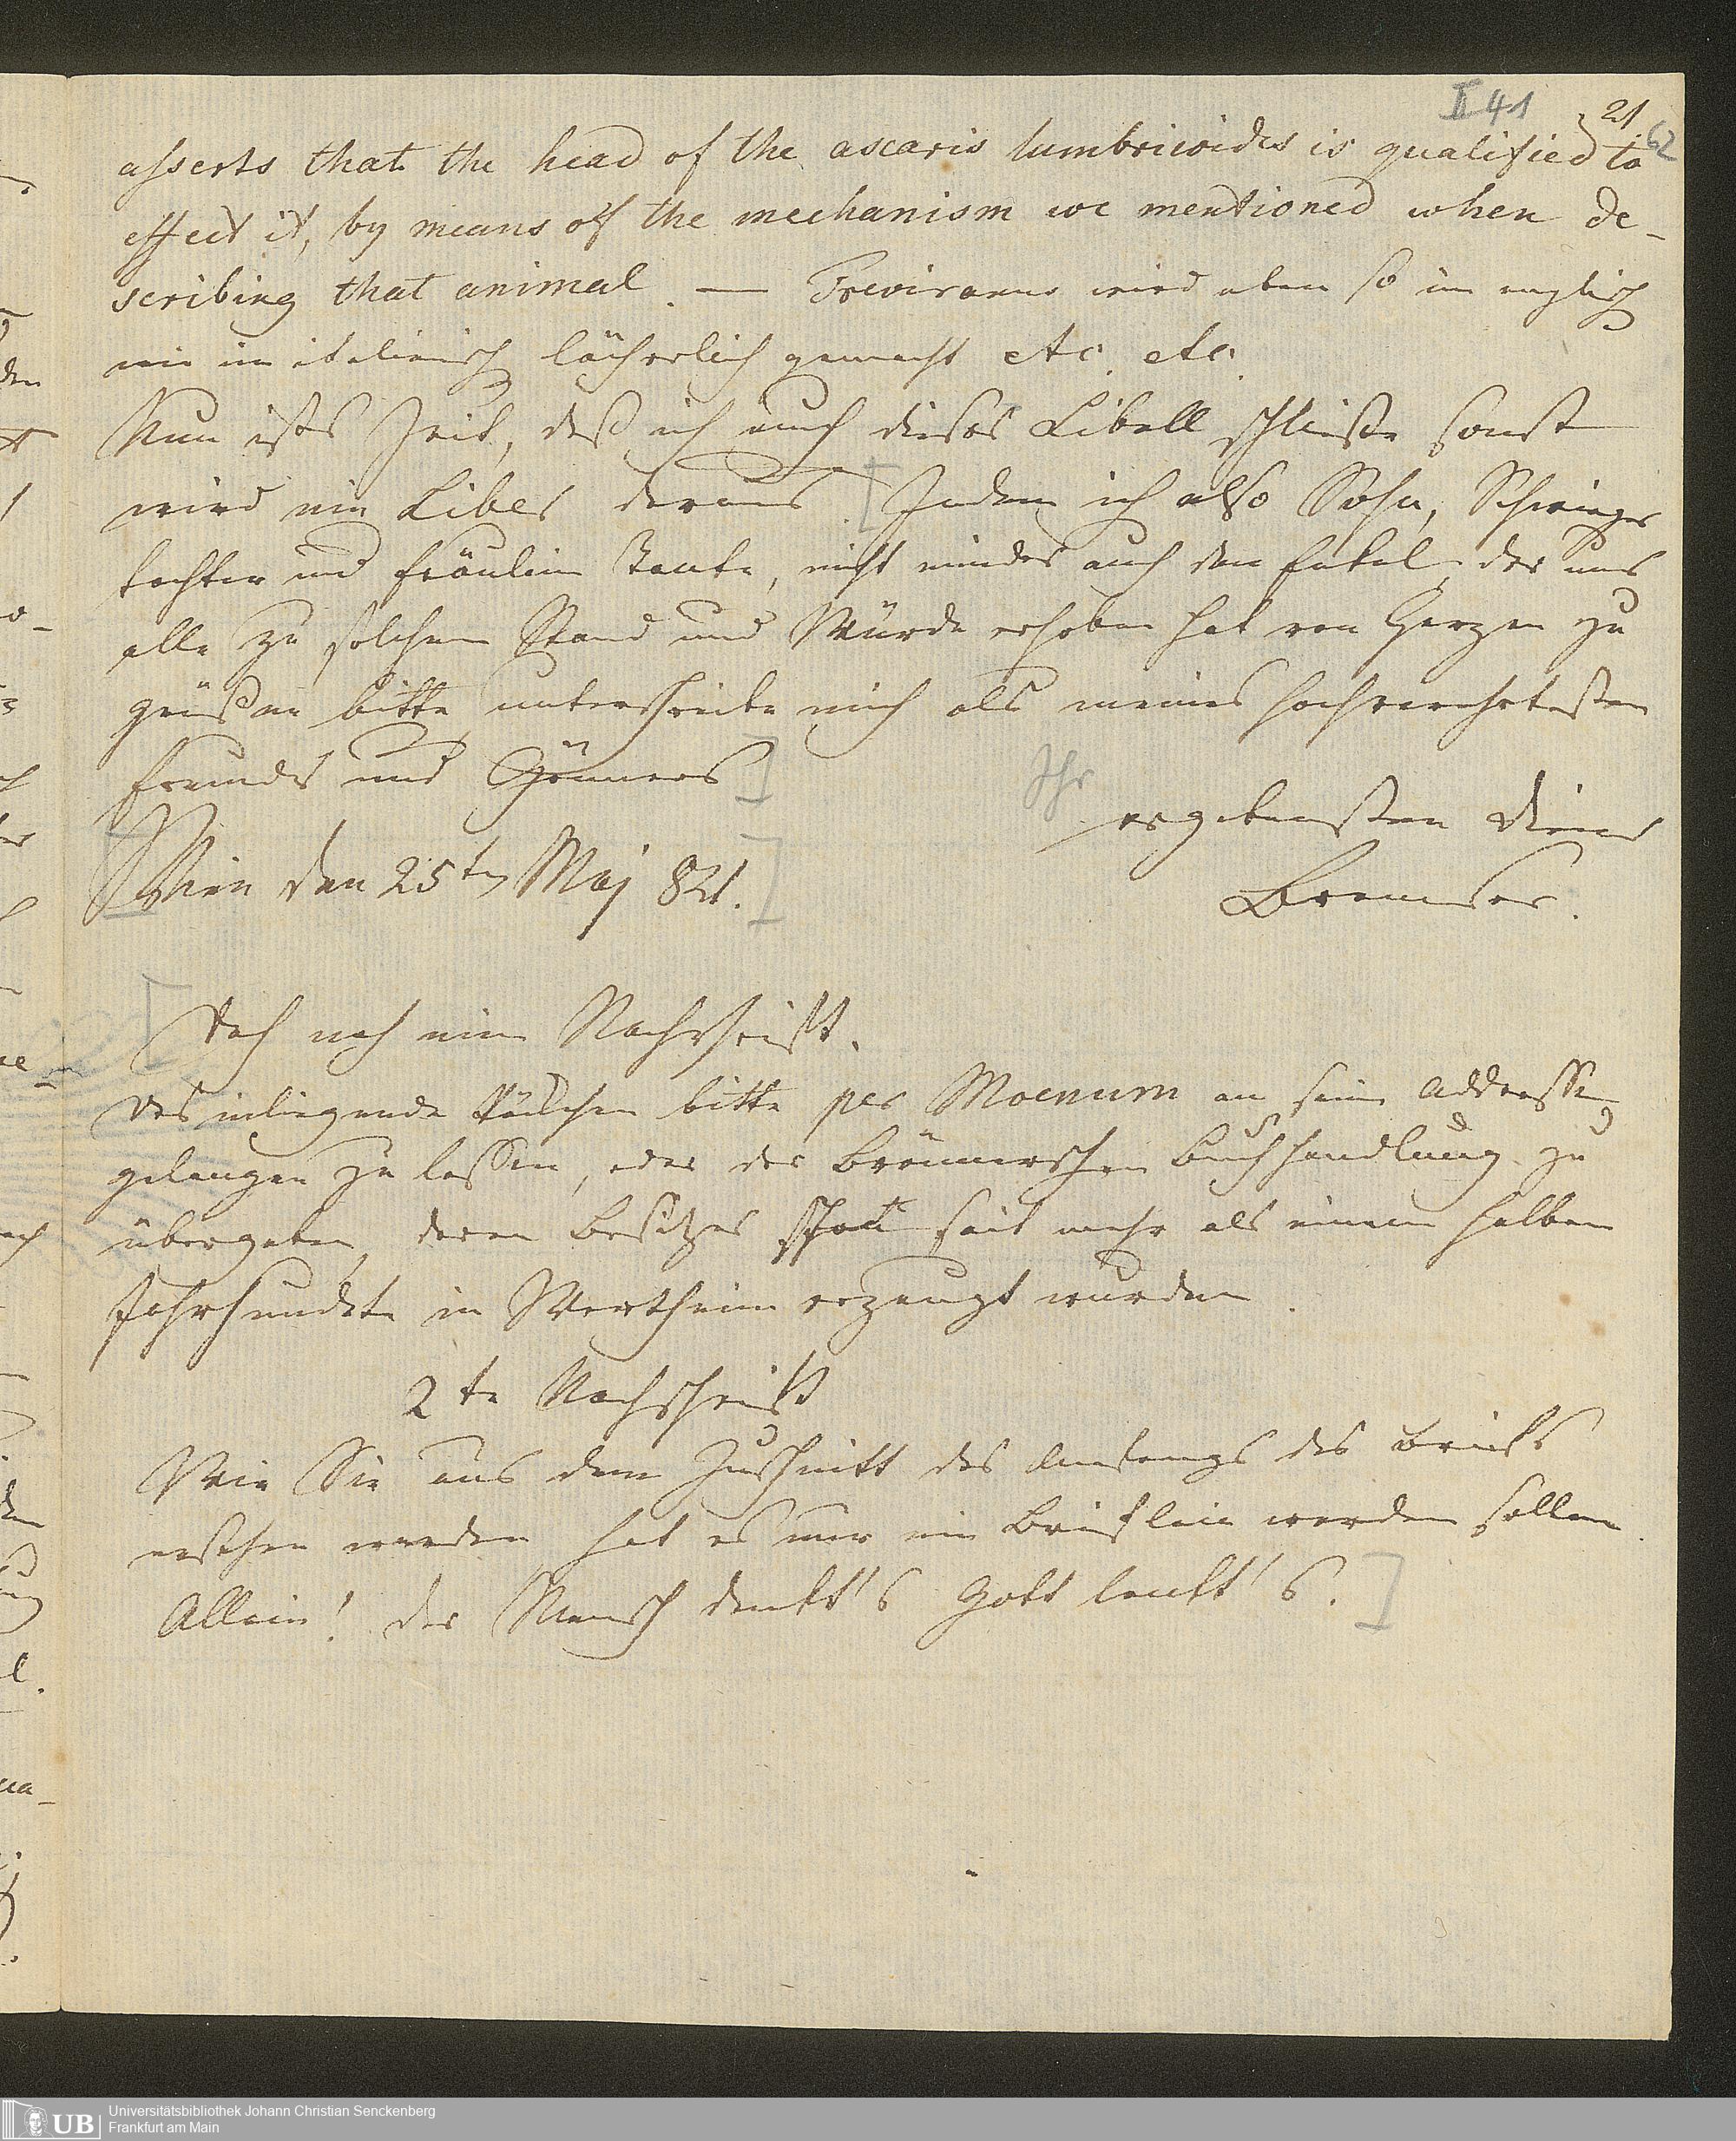 II 41
21.
62
asserts that the head of the ascaris lumbricoides is qualified to
effect it, by means of the mechanism we mentioned when de-
scribing that animal. — Treviranus wird eben so im englisch
wie im italienisch lächerlich gemacht etc. etc.
Nun ists Zeit, daß ich auch dieses Libell schließe sonst
wird ein Liber daraus. [Indem ich also Sohn, Schwieger
tochter und Fräulein Tante, nicht minder auch den Enkel, der uns
alle zu solchem Stand und Würde erhoben hat von Herzen zu
grüßen bitte, unterschreibe mich als meines hochverehrtesten
Freundes und Gönners]
Ihr
ergebensten Diener
[Wien den 25ten Maj 821.]
Bremser.
[Doch noch eine Nachschrift.
Das inliegende Päckchen bitte per Moenum an seine Addresse
gelangen zu lassen, oder der Brönnerschen Buchhandlung zu
übergeben, deren Besitzer schon seit mehr als einem halben
Jahrhundert in Wertheim erzeugt wurden.
2te Nachschrift
Wie Sie aus dem Zuschnitt des Anfangs des Briefs
ersehen werden, hat es nur ein Brieflein werden sollen.
Allein! der Mensch denkt's Gott lenkt's.]
UB
Universitätsbibliothek Johann Christian Senckenberg
Frankfurt am Main